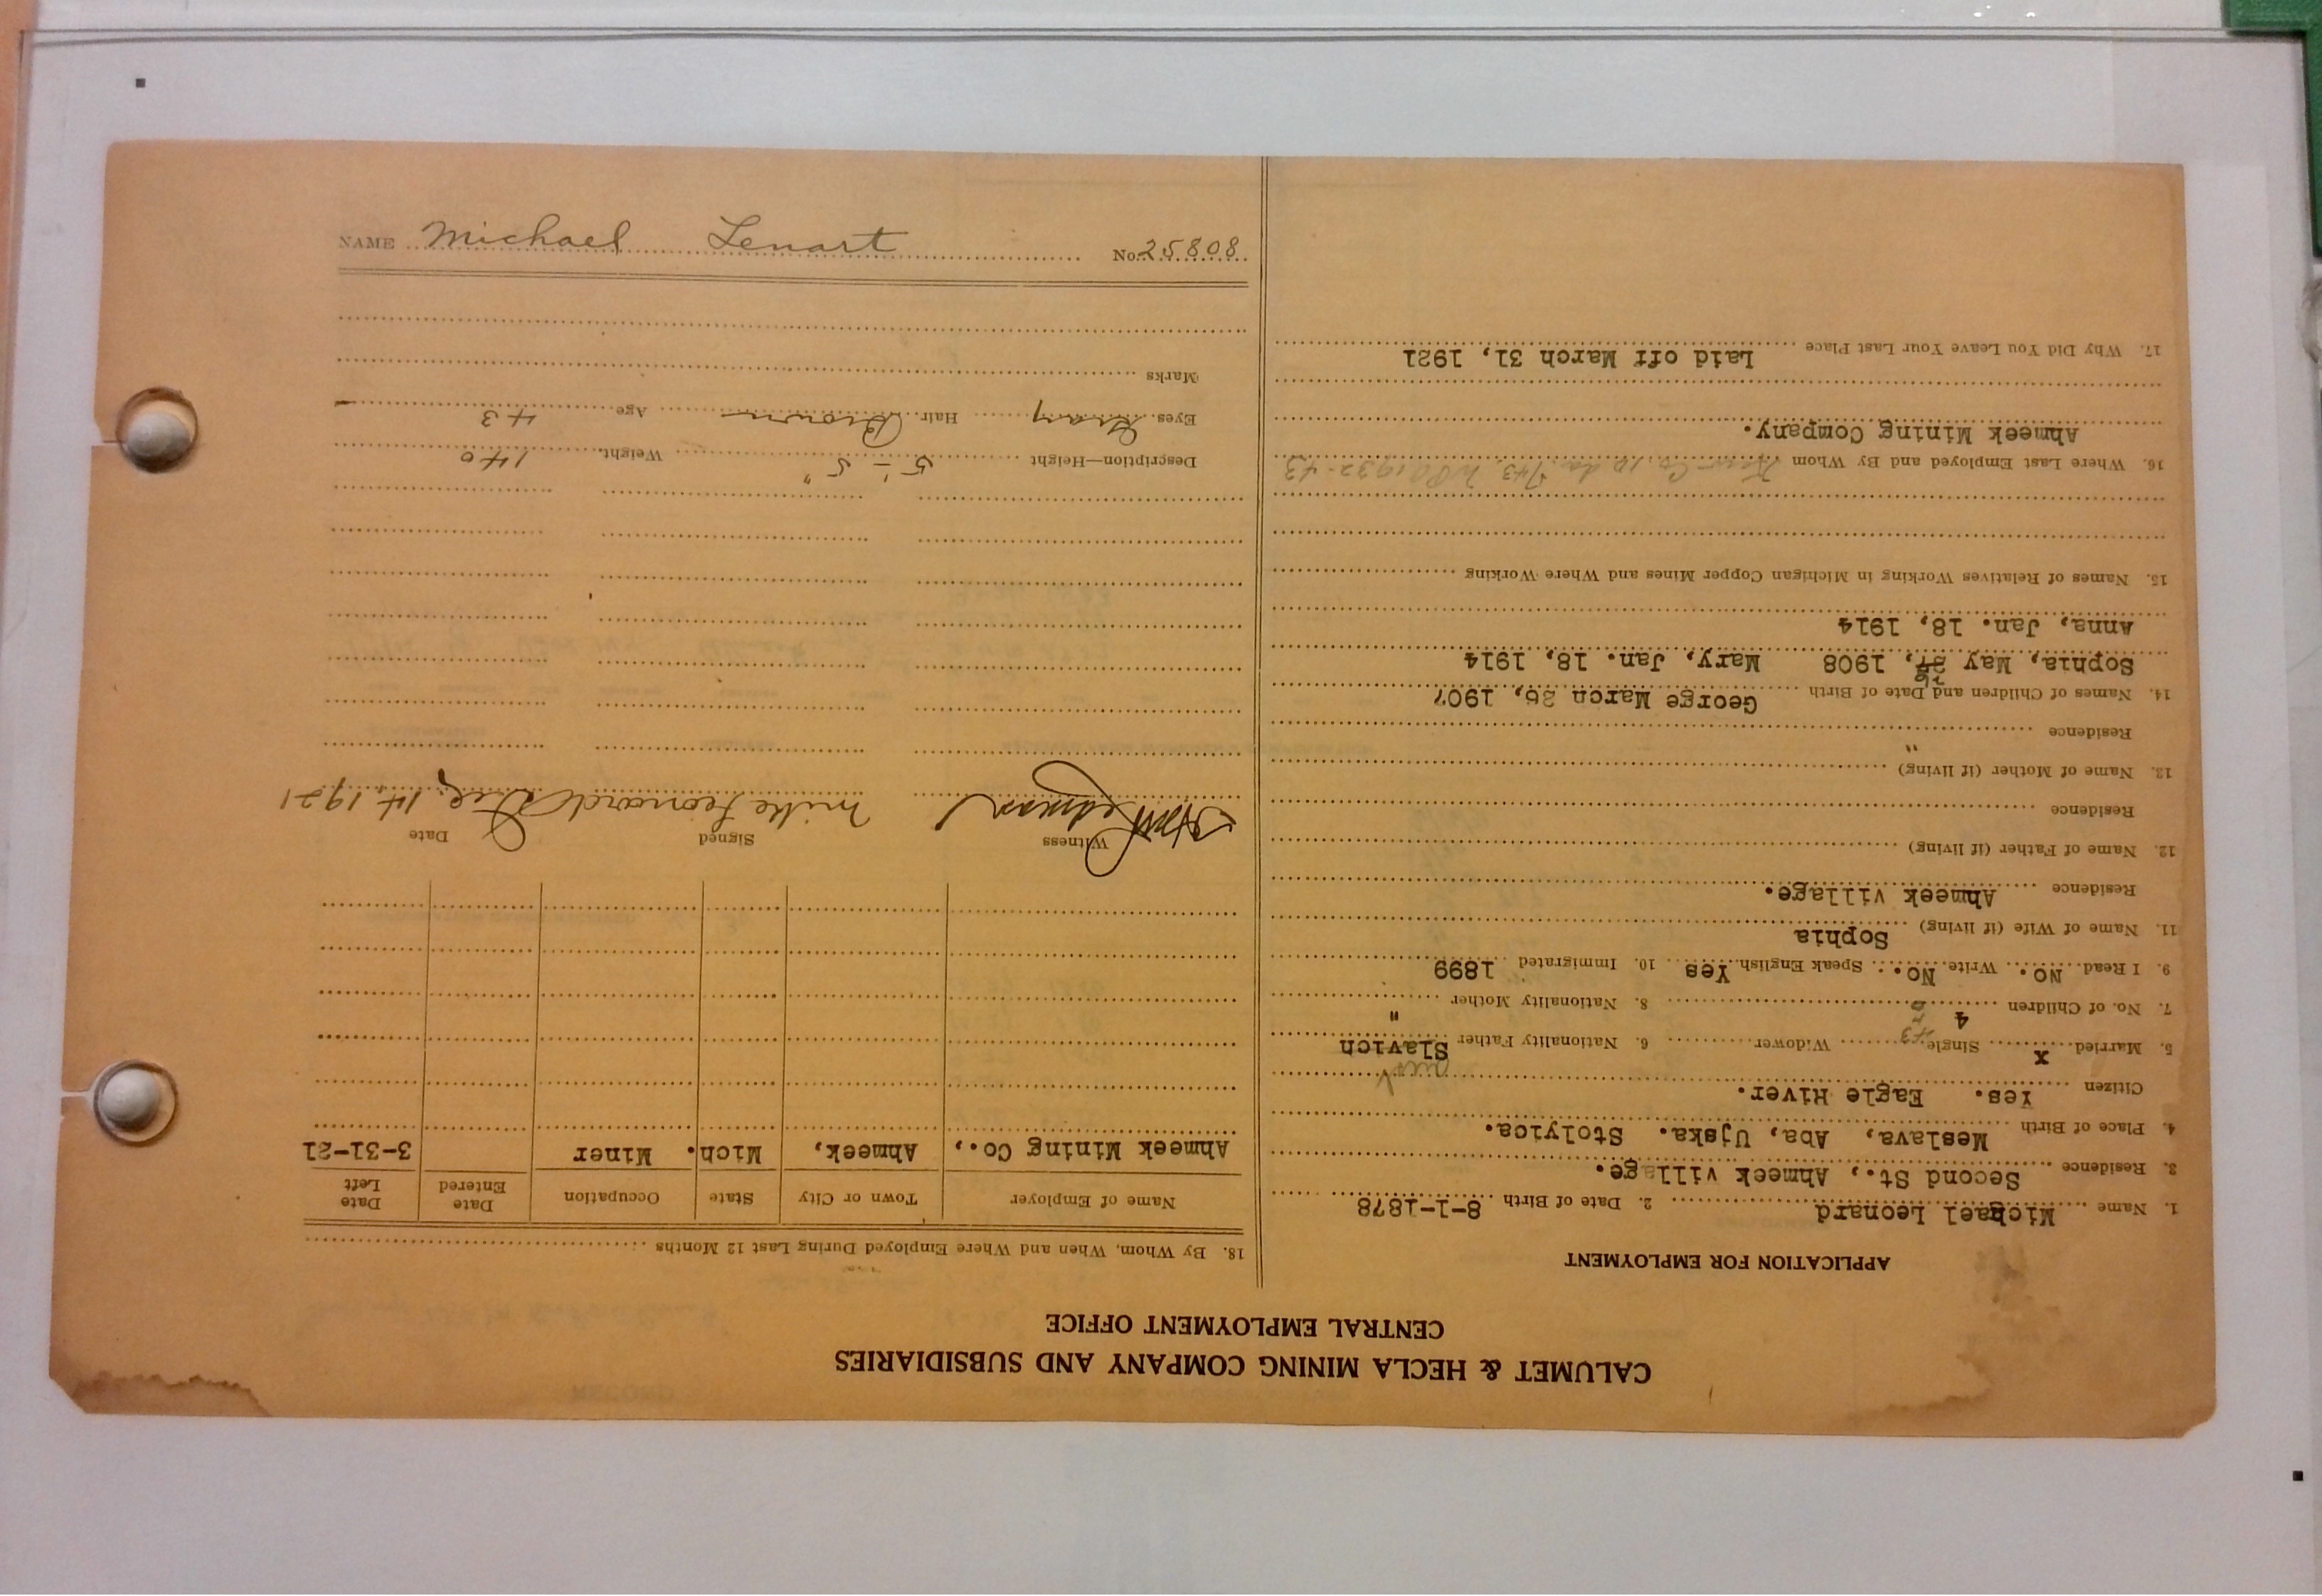 CALUMET & HECLA MINING COMPANY AND SUBSIDIARIES
CENTRAL EMPLOYMENT OFFICE
APPLICATION FOR EMPLOYMENT
1. Name Michael Leonard 2. Date of Birth 8-1-1878
3. Residence Second St., Ahmeek village.
4. Place of Birth Meslava, Aba, Ujska. Stolyica.
Citizen Yes. Eagle River.
5. Married x Single Widower 6. Nationality Father Slavich
7. No. of Children 4 8. Nationality Mother "
9. I Read No. Write No. Speak English Yes 10. Immigrated 1899
11. Name of Wife (if living) Sophia
Residence Ahmeek village.
12. Name of Father (if living)
Residence
13. Name of Mother (if living) "
Residence
14. Names of Children and Date of Birth George March 26, 1907
Sophia, May , 1908 Mary, Jan. 18, 1914
Anna, Jan. 18, 1914
15. Names of Relatives Working in Michigan Copper Mines and Where Working
16. Where Last Employed and By Whom Kew Co. 10 da. 743. WPA 1932-43
Ahmeek Mining Company.
17. Why Did You Leave Your Last Place Laid off March 31, 1921
18. By Whom, When and Where Employed During Last 12 Months
Name of Employer Town or City State Occupation Date Entered Date Left
Ahmeek Mining Co., Ahmeek, Mich. Miner 3-31-21
Witness Signed Date
Mike Leonard Dec. 14, 1921
Description—Height 5'-5" Weight 140
Eyes Gray Hair Brown Age 43
Marks
NAME Michael Lenart No. 25808